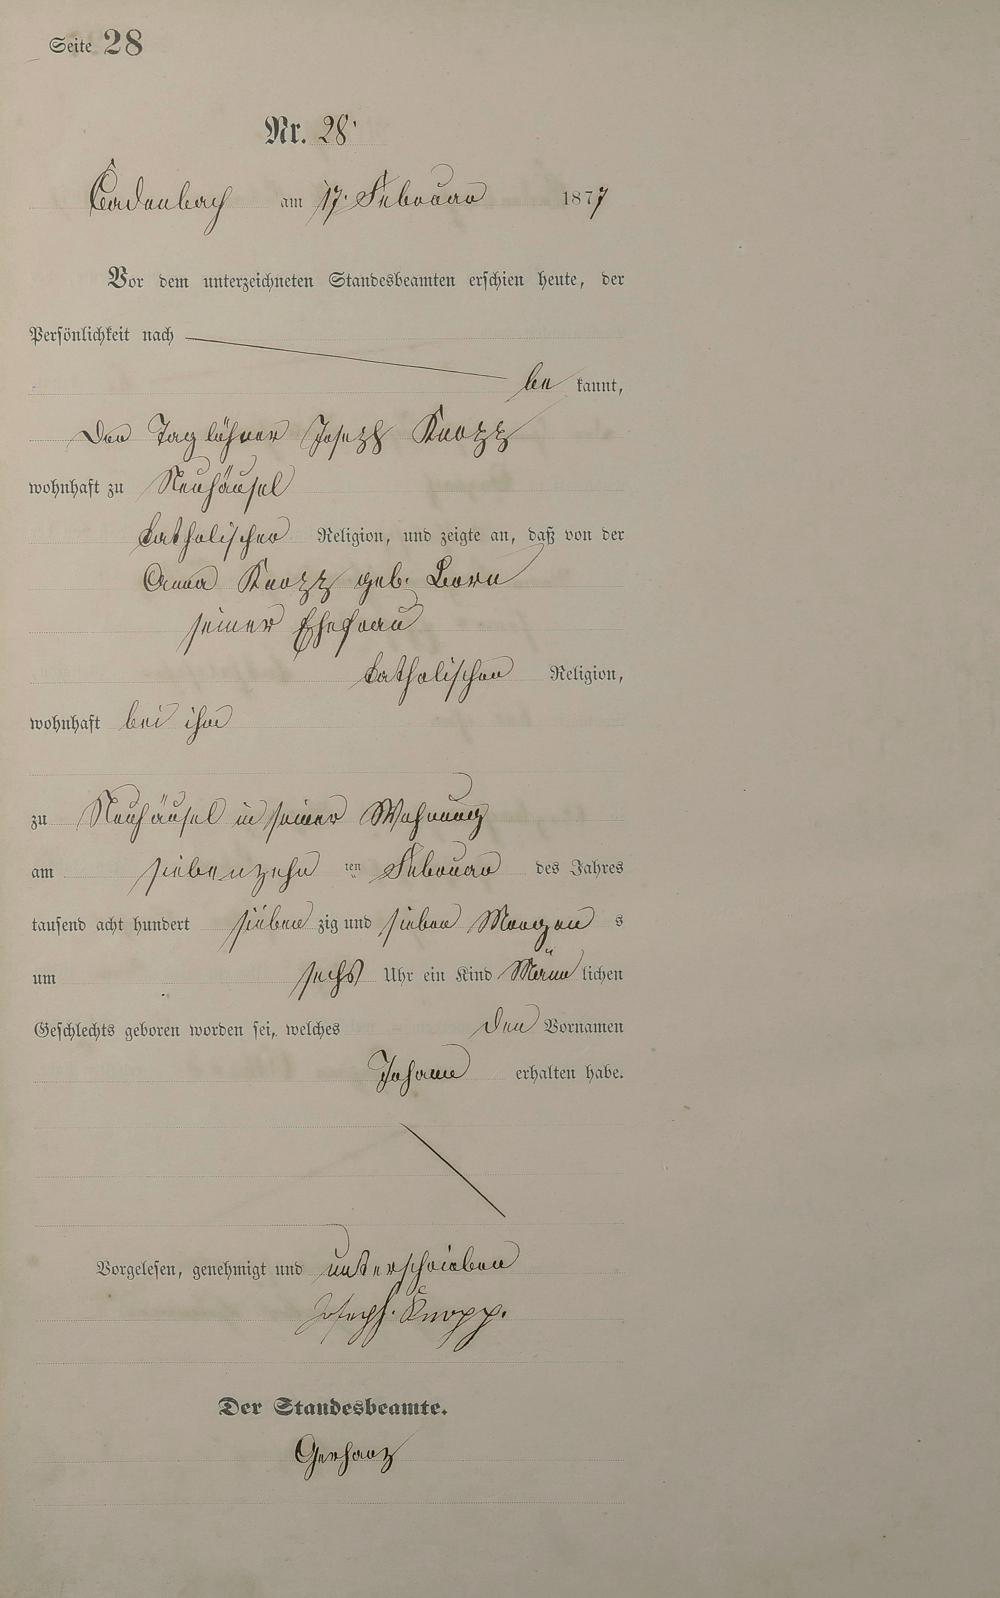 Seite 28
Nr. 28.
Cadenbach am 17. Februar 1877
Vor dem unterzeichneten Standesbeamten erschien heute, der
Persönlichkeit nach
be kannt,
der Taglöhner Joseph Knopp
wohnhaft zu Neuhäusel
katholischer Religion, und zeigte an, daß von der
Anna Knopp geb. Born
seiner Ehefrau
katholischer Religion,
wohnhaft bei ihm
zu Neuhäusel in seiner Wohnung
am siebenzehn ten Februar des Jahres
tausend acht hundert sieben zig und sieben Morgen s
um sechs Uhr ein Kind Männ lichen
Geschlechts geboren worden sei, welches den Vornamen
Johann erhalten habe.
Vorgelesen, genehmigt und unterschrieben
Joseph Knopp.
Der Standesbeamte.
Gerharz